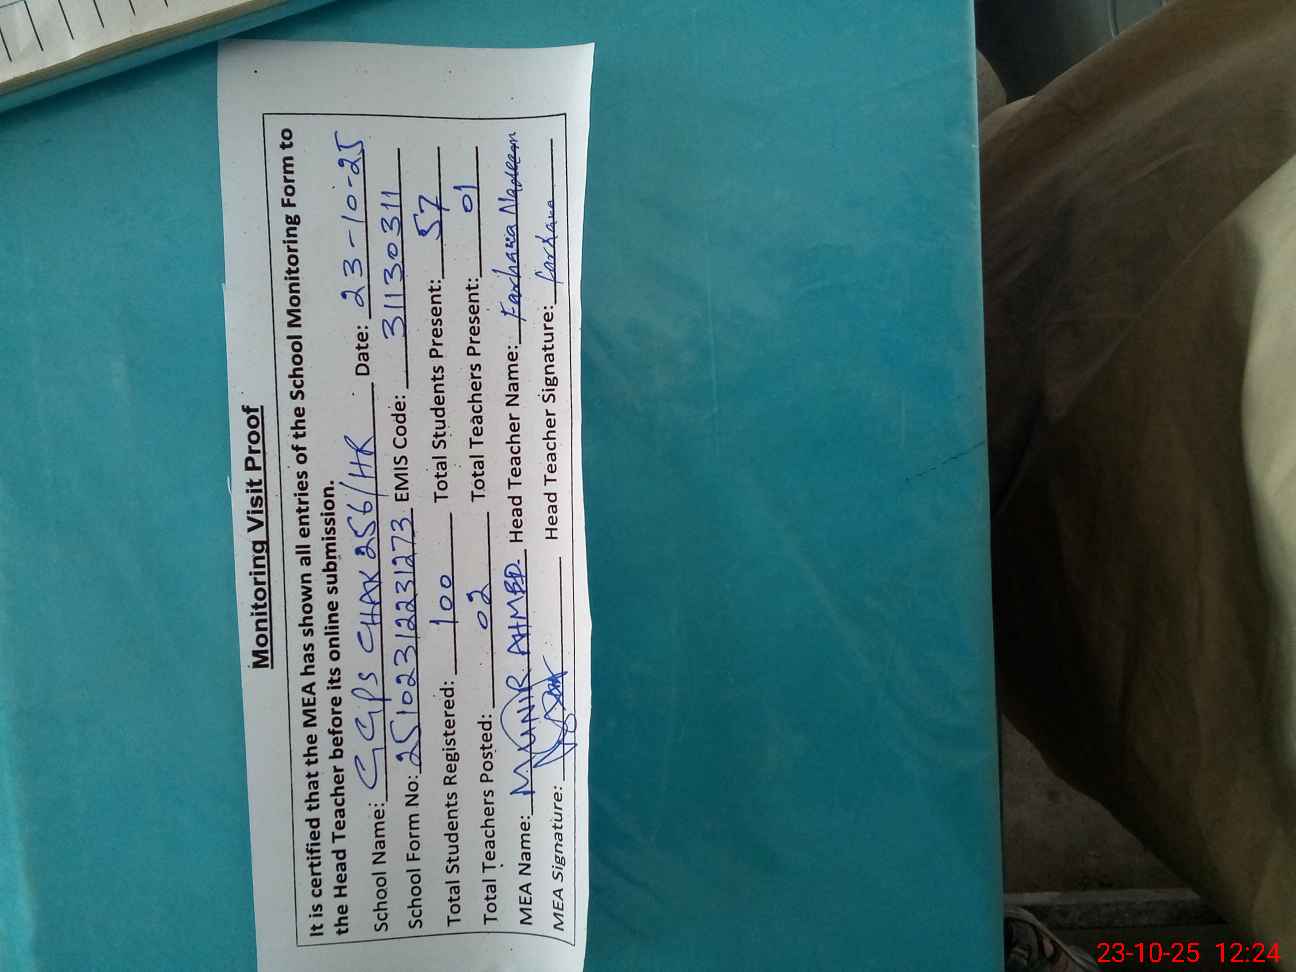 Monitoring Visit Proof
It is certified that the MEA has shown all entries of the School Monitoring Form to
the Head Teacher before its online submission.
School Name: GGPS CHAK 256/HR Date: 23-10-25
School Form No: 25102312231273 EMIS Code: 31130311
Total Students Registered: 100 Total Students Present: 57
Total Teachers Posted: 02 Total Teachers Present: 01
MEA Name: MUNIR AHMED Head Teacher Name: Farhana Nadeem
MEA Signature: Head Teacher Signature: Farhana
23-10-25 12:24